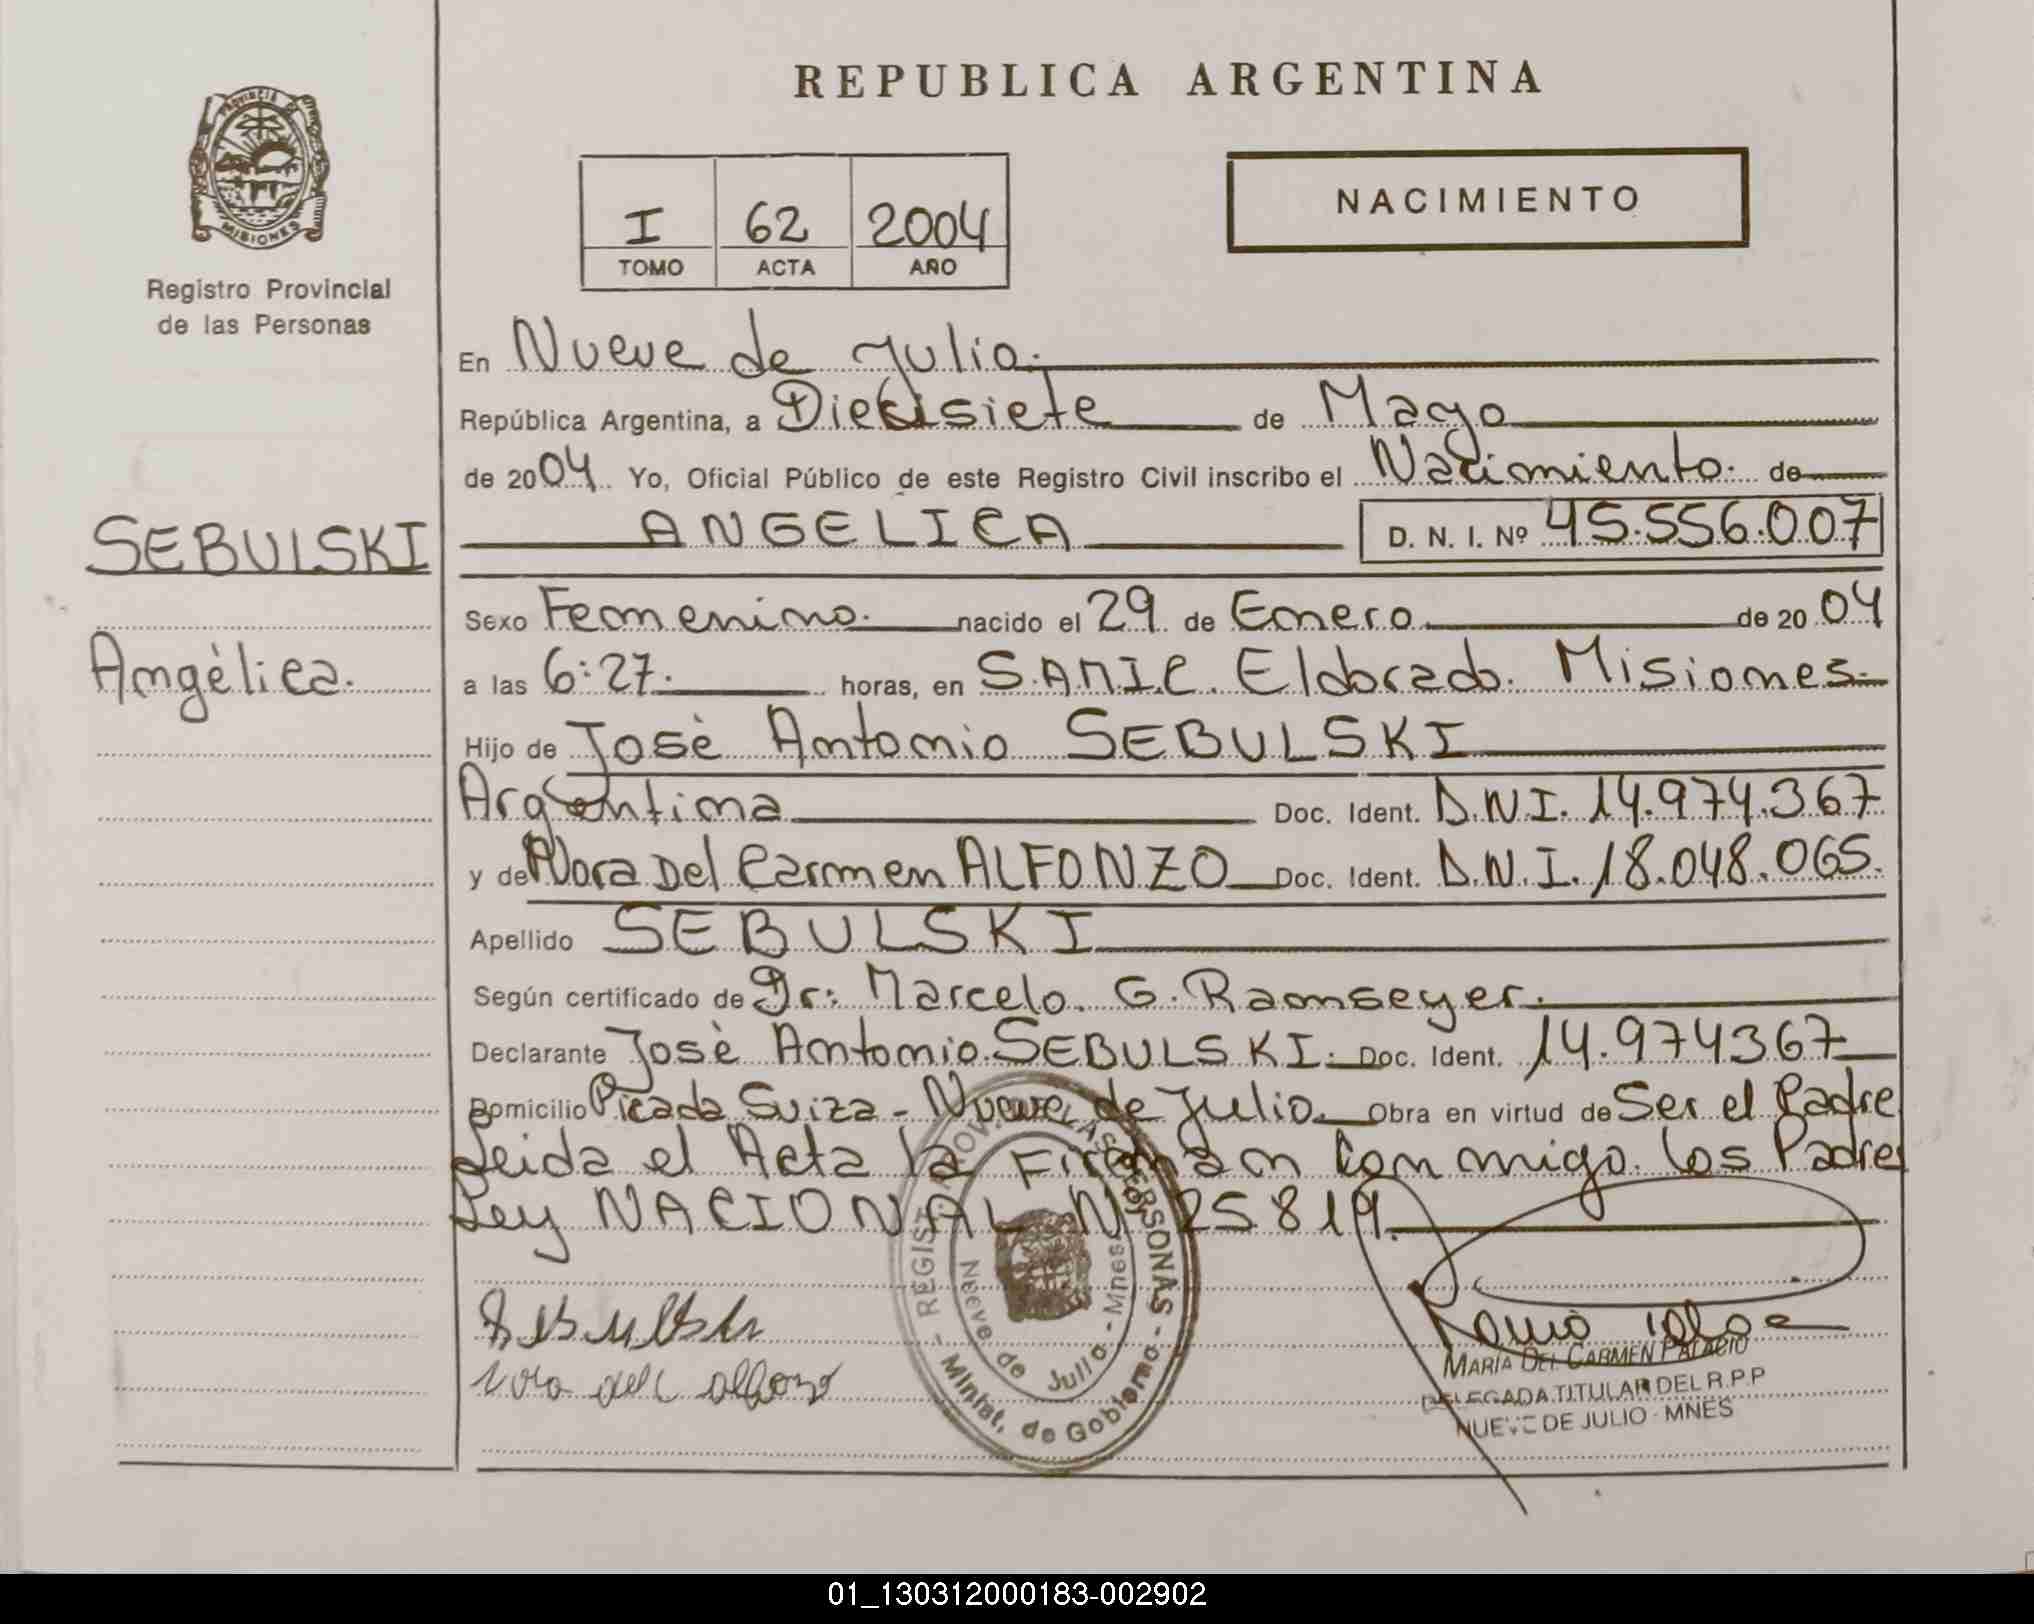 REPUBLICA ARGENTINA
PROVINCIA DE
MISIONES
Registro Provincial
de las Personas
I 62 2004
TOMO ACTA AÑO
NACIMIENTO
En Nueve de Julio.
República Argentina, a Diecisiete de Mayo
de 2004. Yo, Oficial Público de este Registro Civil inscribo el Nacimiento. de
SEBULSKI
Angélica.
ANGELICA D. N. I. Nº 45.556.007
Sexo Femenino. nacido el 29 de Enero de 2004
a las 6:27. horas, en S.AMIC. Eldorado. Misiones.
Hijo de Josè Antonio SEBULSKI
Argentina Doc. Ident. D.N.I. 14.974.367
y de Nora Del Carmen ALFONZO Doc. Ident. D.N.I. 18.048.065.
Apellido SEBULSKI
Según certificado de Dr: Marcelo. G. Ramseyer.
Declarante Josè Antonio SEBULSKI. Doc. Ident. 14.974367
Domicilio Picada Suiza - Nueve de Julio. Obra en virtud de Ser el Padre
Leida el Acta la Firman Con migo. los Padres
Ley NACIONAL Nº 25819.
Sebulski
Nora del C alfonzo
- REGIST. PROV. DE LAS PERSONAS -
Minist. de Gobierno
Nueve de Julio - Mnes
MARIA DEL CARMEN PALACIO
DELEGADA TITULAR DEL R.P.P
NUEVE DE JULIO - MNES
01_130312000183-002902